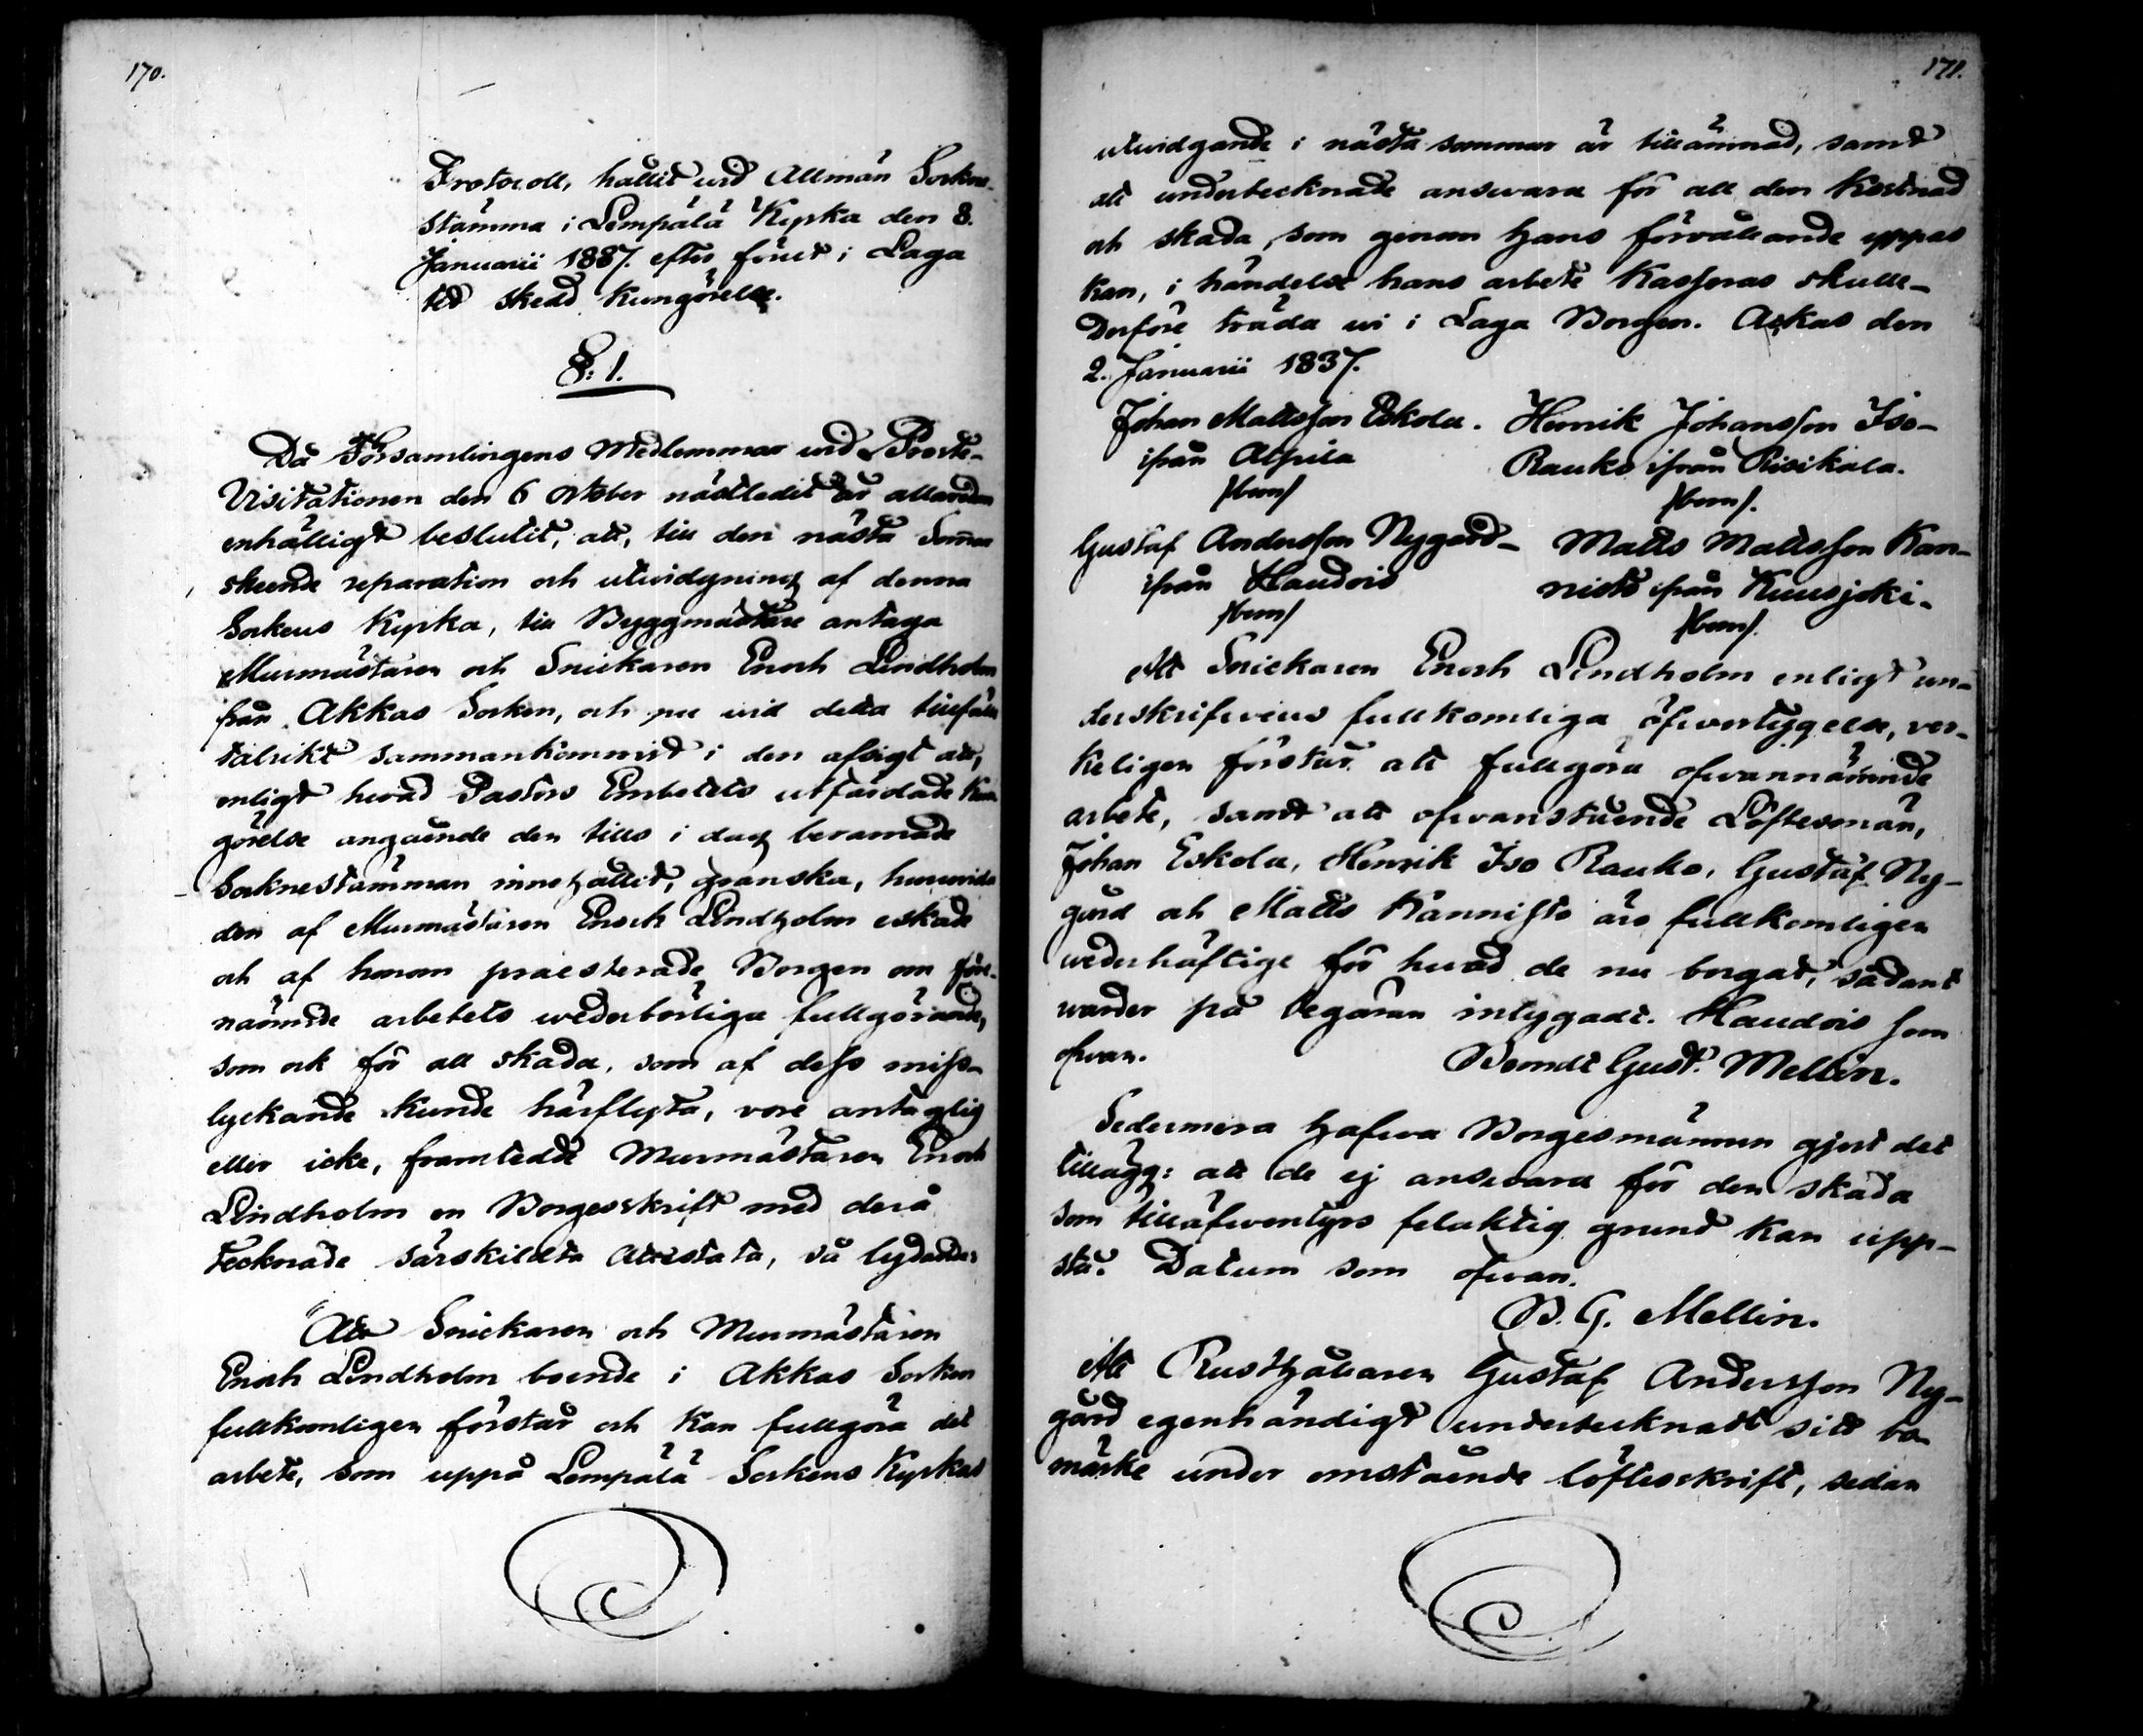 170.
Protocoll, hållit vid Allmän Sockne-
stämma i Lempälä Kyrka den 8.
Januarii 1837. efter förut i Laga
tid skedd Kungörelse.
§: 1.
Då Församlingens Medlemmar vid Proste-
Visitationen den 6 October nästledit år allaredan
enhälligt beslutit, att, till den nästa Somar
skeende reparation och utvidgning af denna
Sockens Kyrka, till Byggmästare antaga
Murmästaren och Snickaren Enoch Lindholm
från Akkas Socken, och nu vid detta tillfälle
talrikt sammankommit i den afsigt att,
enligt hvad Pastors Embetets utfärdade Kun
görelse angående den tills i dag beramade
Socknestämman innehållit, granska, huruvida
den af Murmästaren Enoch Lindholm eskade
och af honom praesterade Borgen om före-
nämnde arbetets wederbörliga fullgörande,
som ock för all skada, som af dess miss-
lyckande kunde härflyta, vore antaglig
eller icke, framtedde Murmästaren Enoch
Lindholm en Borgesskrift med derå
tecknade särskildta Attestata, så lydande:
"Att Snickaren och Murmästaren
Enoch Lindholm boende i Akkas Socken
fullkomligen förstår och kan fullgöra det
arbete, som uppå Lempälä Sockens Kyrkas
171.
utvidgande i nästa sommar är tillämnad, samt
att undertecknade answara för all den Kostnad
och skada, som genom hans förvållande yppas
kan, i händelse hans arbete Kasseras skulle-
Derföre träda vi i Laga Borgen. Ackas den
2. Januarii 1837.
Johan Mattsson Eskola. Henrik Johansson Iso-
ifrån Alpila Rauko ifrån Risikala.
/bom/ /bom/.
Gustaf Andersson Nygård- Matts Mattsson Kan-
ifrån Haudois nisto ifrån Kuusjoki.
/bom/ /bom/.
Att Snickaren Enoch Lindholm enligt un-
derskrifvens fullkomliga öfvertygelse, ver-
keligen förstår att fullgöra ofvannämnde
arbete, samt att ofvanstående Löftesmän,
Johan Eskola, Henrik Iso Rauko, Gustaf Ny-
gård och Matts Kannisto äro fullkomligen
wederhäftige för hvad de nu borgat, sådant
warder på begäran intygadt. Haudois som
ofvan. Berndt Gust. Mellin.
Sedermera hafva Borgesmännen gjort det
tillägg: att de ej answara för den skada
som tilläfventyrs felaktig grund kan upp-
stå. Datum som ofvan.
B. G. Mellin.
Att Rusthållaren Gustaf Andersson Ny-
gård egenhändigt undertecknadt sitt bo
märke under omstående löftesskrift, sedan